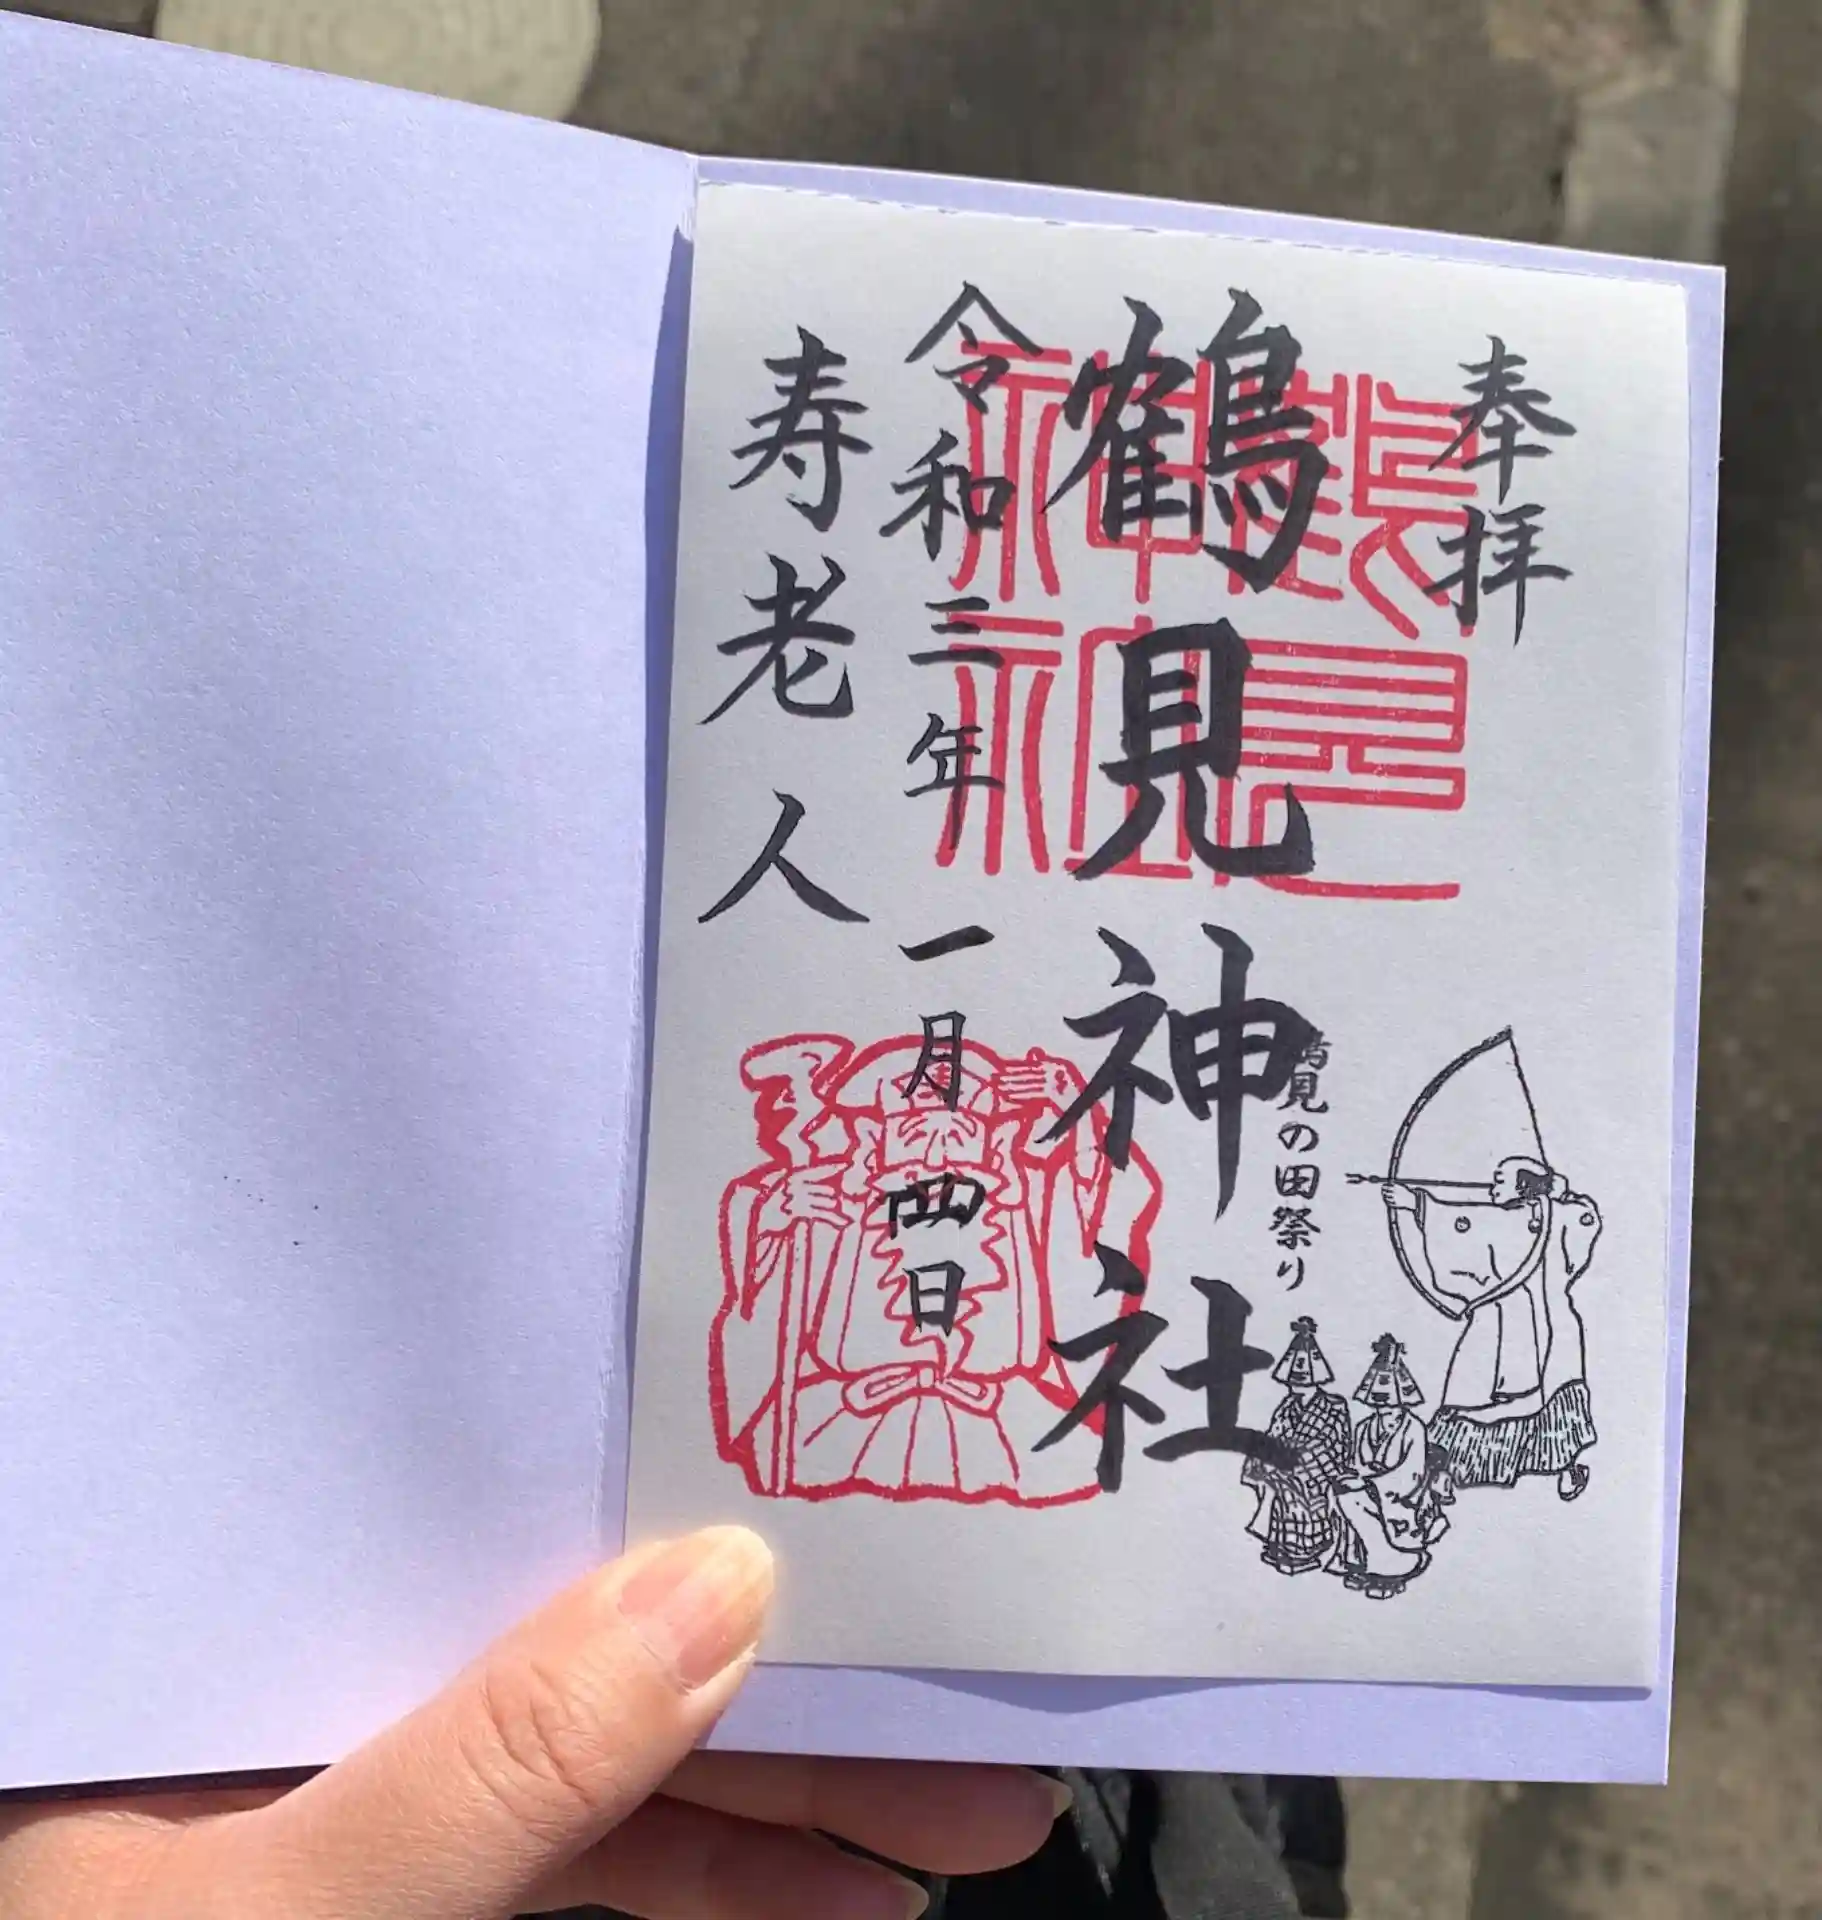 奉拝
鶴見神社
鶴見神社
鶴見の田祭り
令和三年一月四日
寿老人